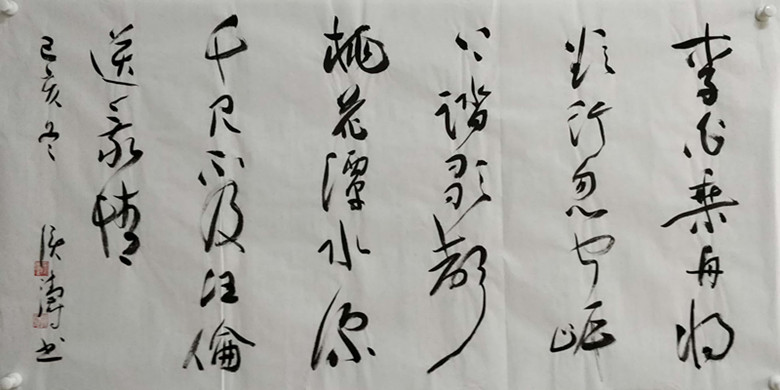 李白乘舟将
欲行忽闻岸
上踏歌声
桃花潭水深
千尺不及汪倫
送我情
己亥冬 侯濤书